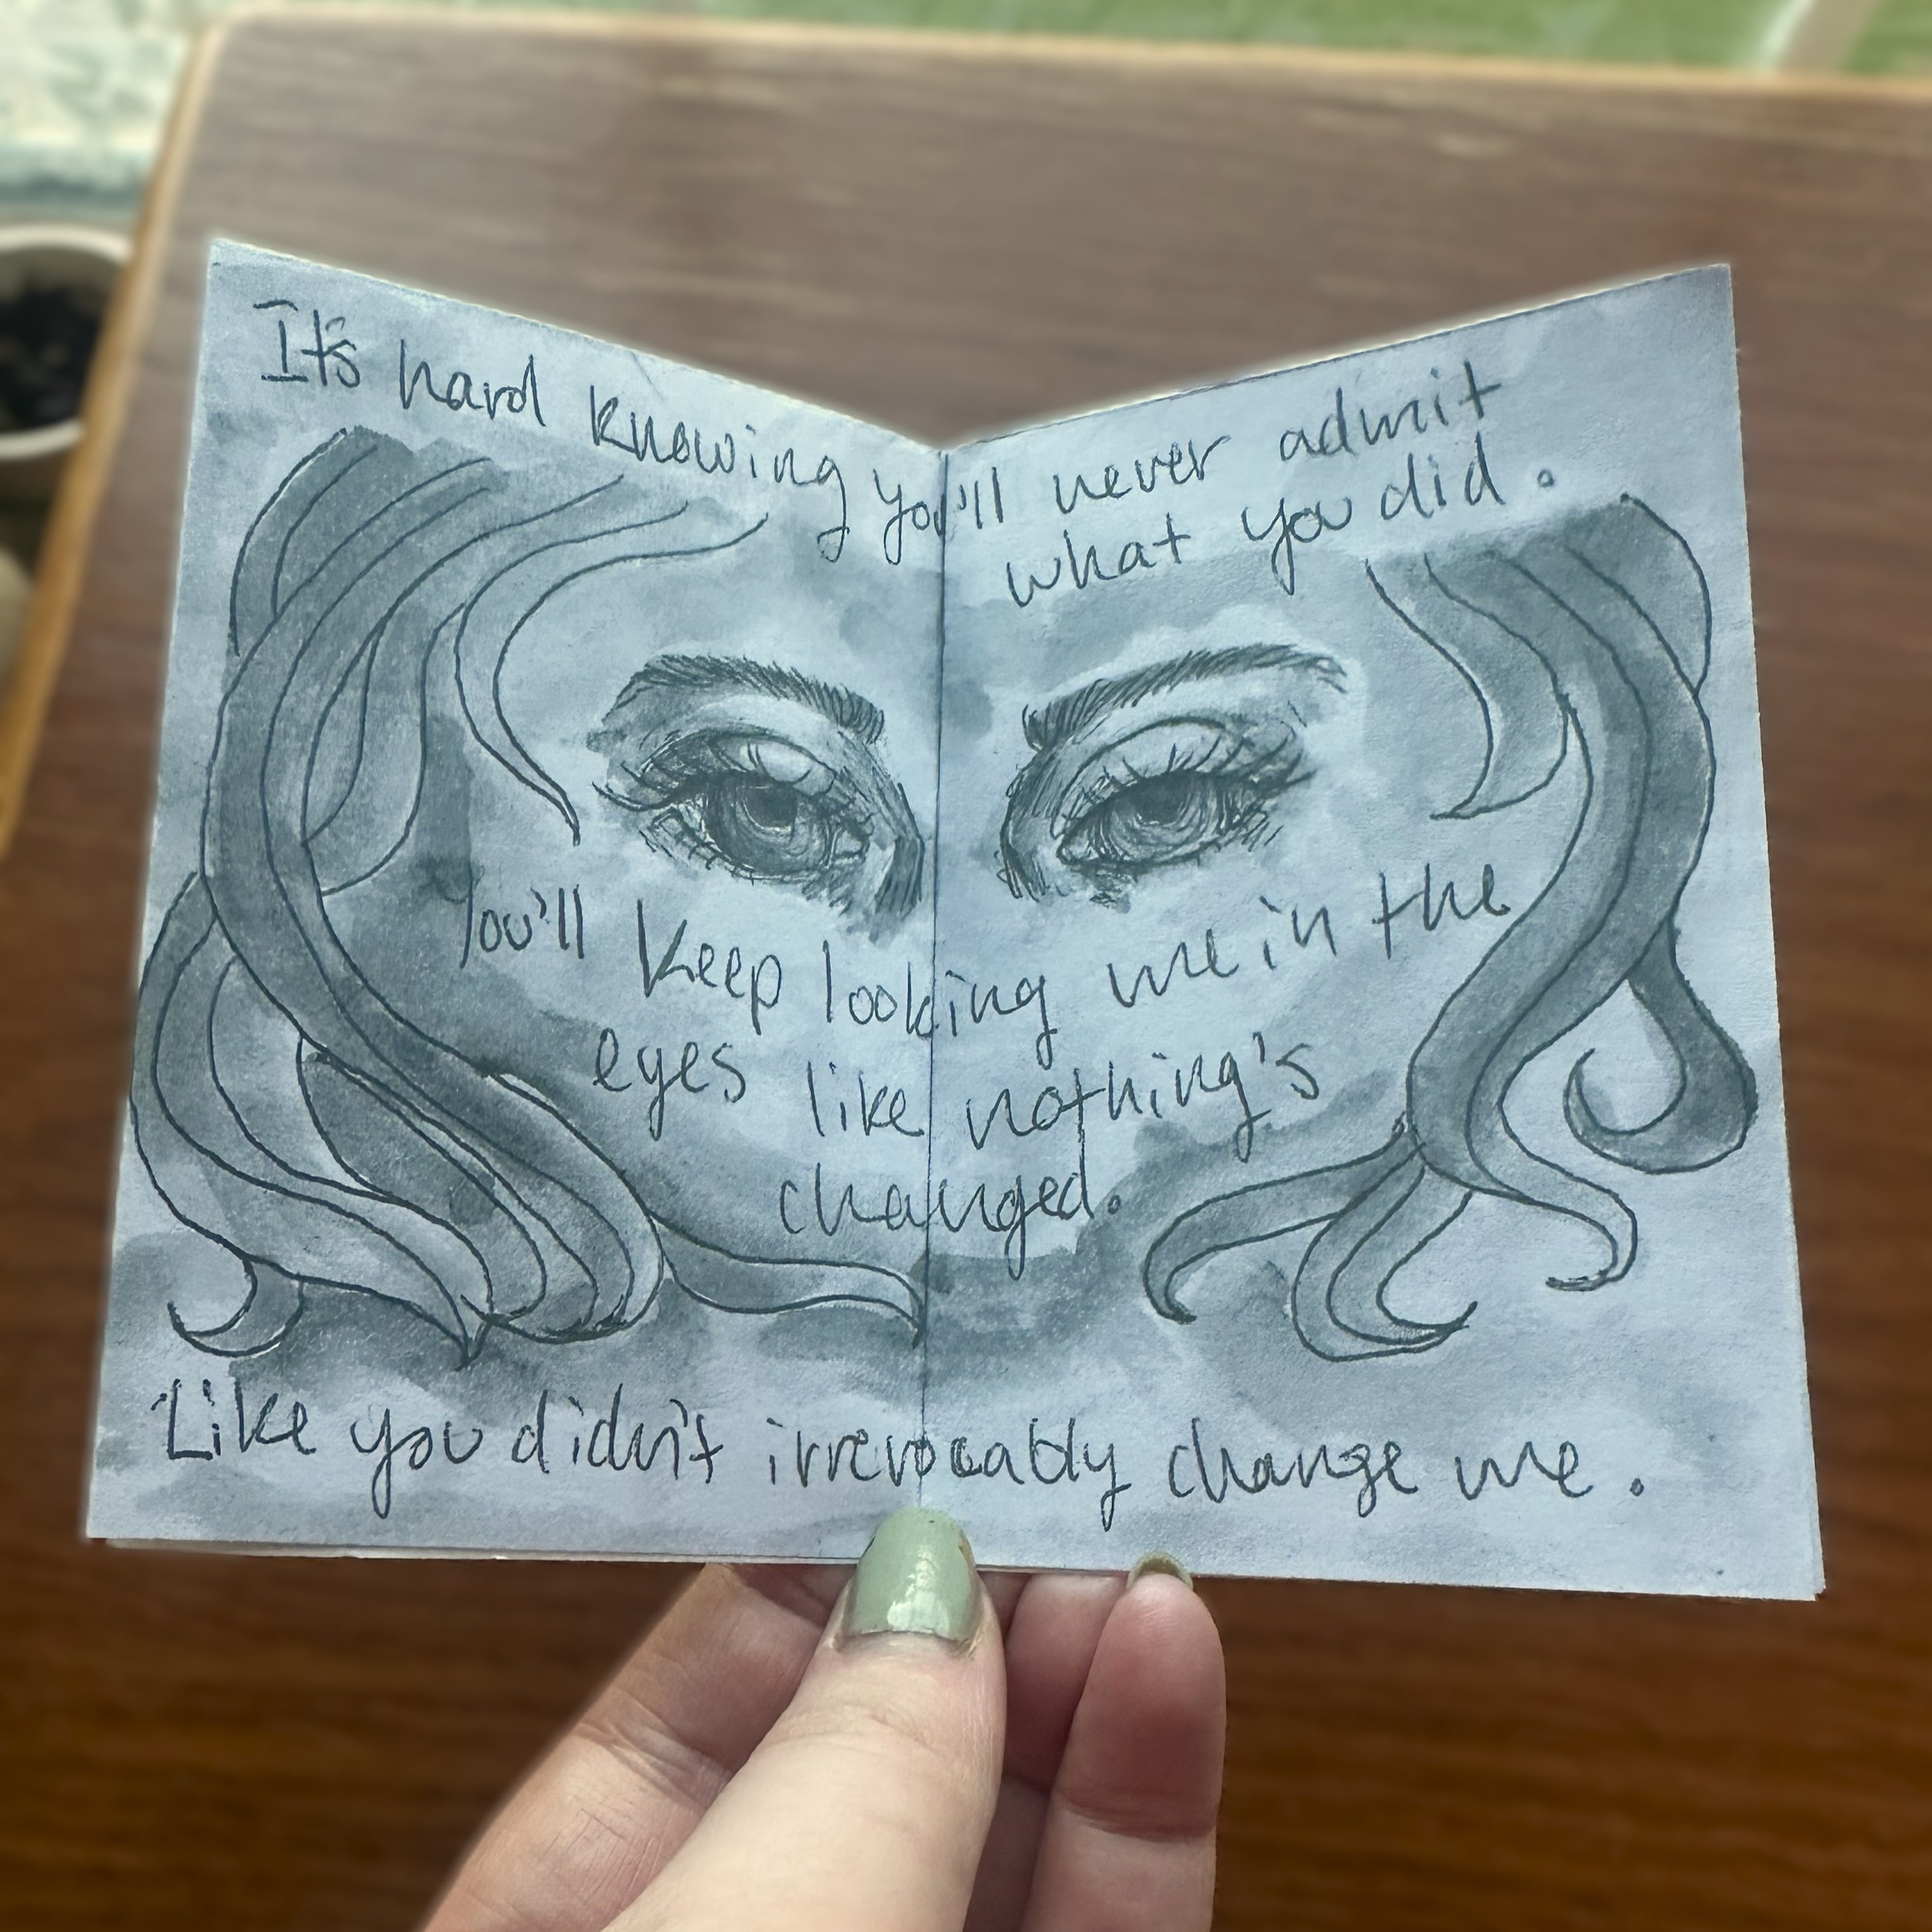 It's hard knowing you'll never admit
what you did.
You'll keep looking me in the
eyes like nothing's
changed.
Like you didn't irrevocably change me.